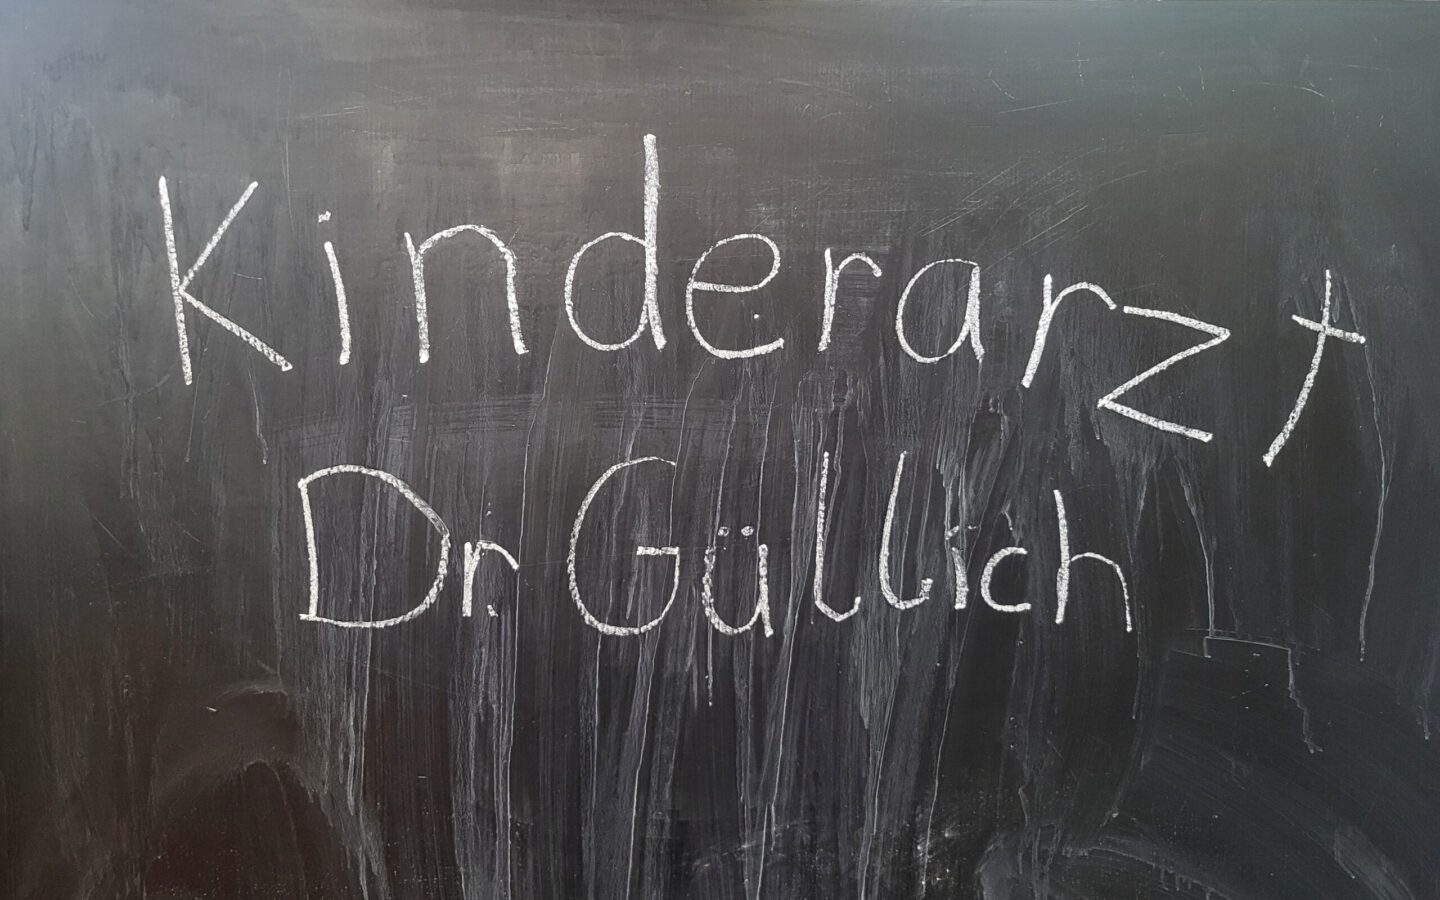 Kinderarzt
Dr. Güllich